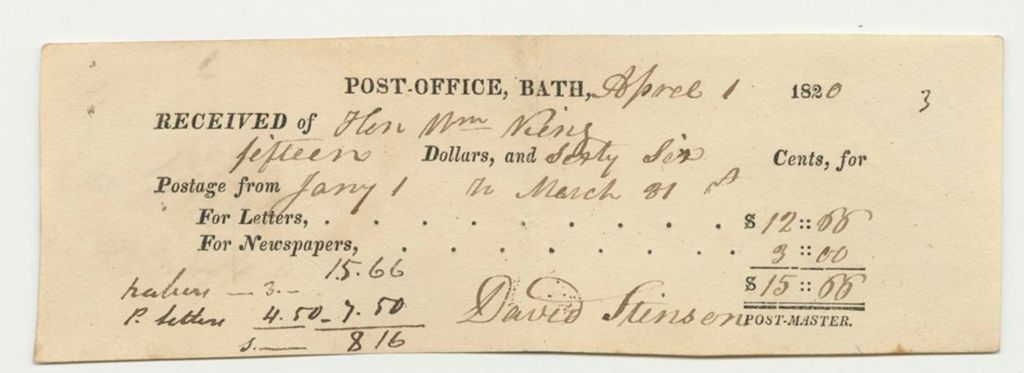 POST-OFFICE, BATH, April 1 1820 3
RECEIVED of Hon Wm King
fifteen Dollars, and Sixty Six Cents, for
Postage from Jany 1 to March 31
For Letters, . . . . . . . . . . $ 12 :: 66
For Newspapers, . . . . . . . . 3 :: 00
$ 15 :: 66
15.66
3
P. letters 4.50 - 7.50
8 16
David Stinson POST-MASTER.